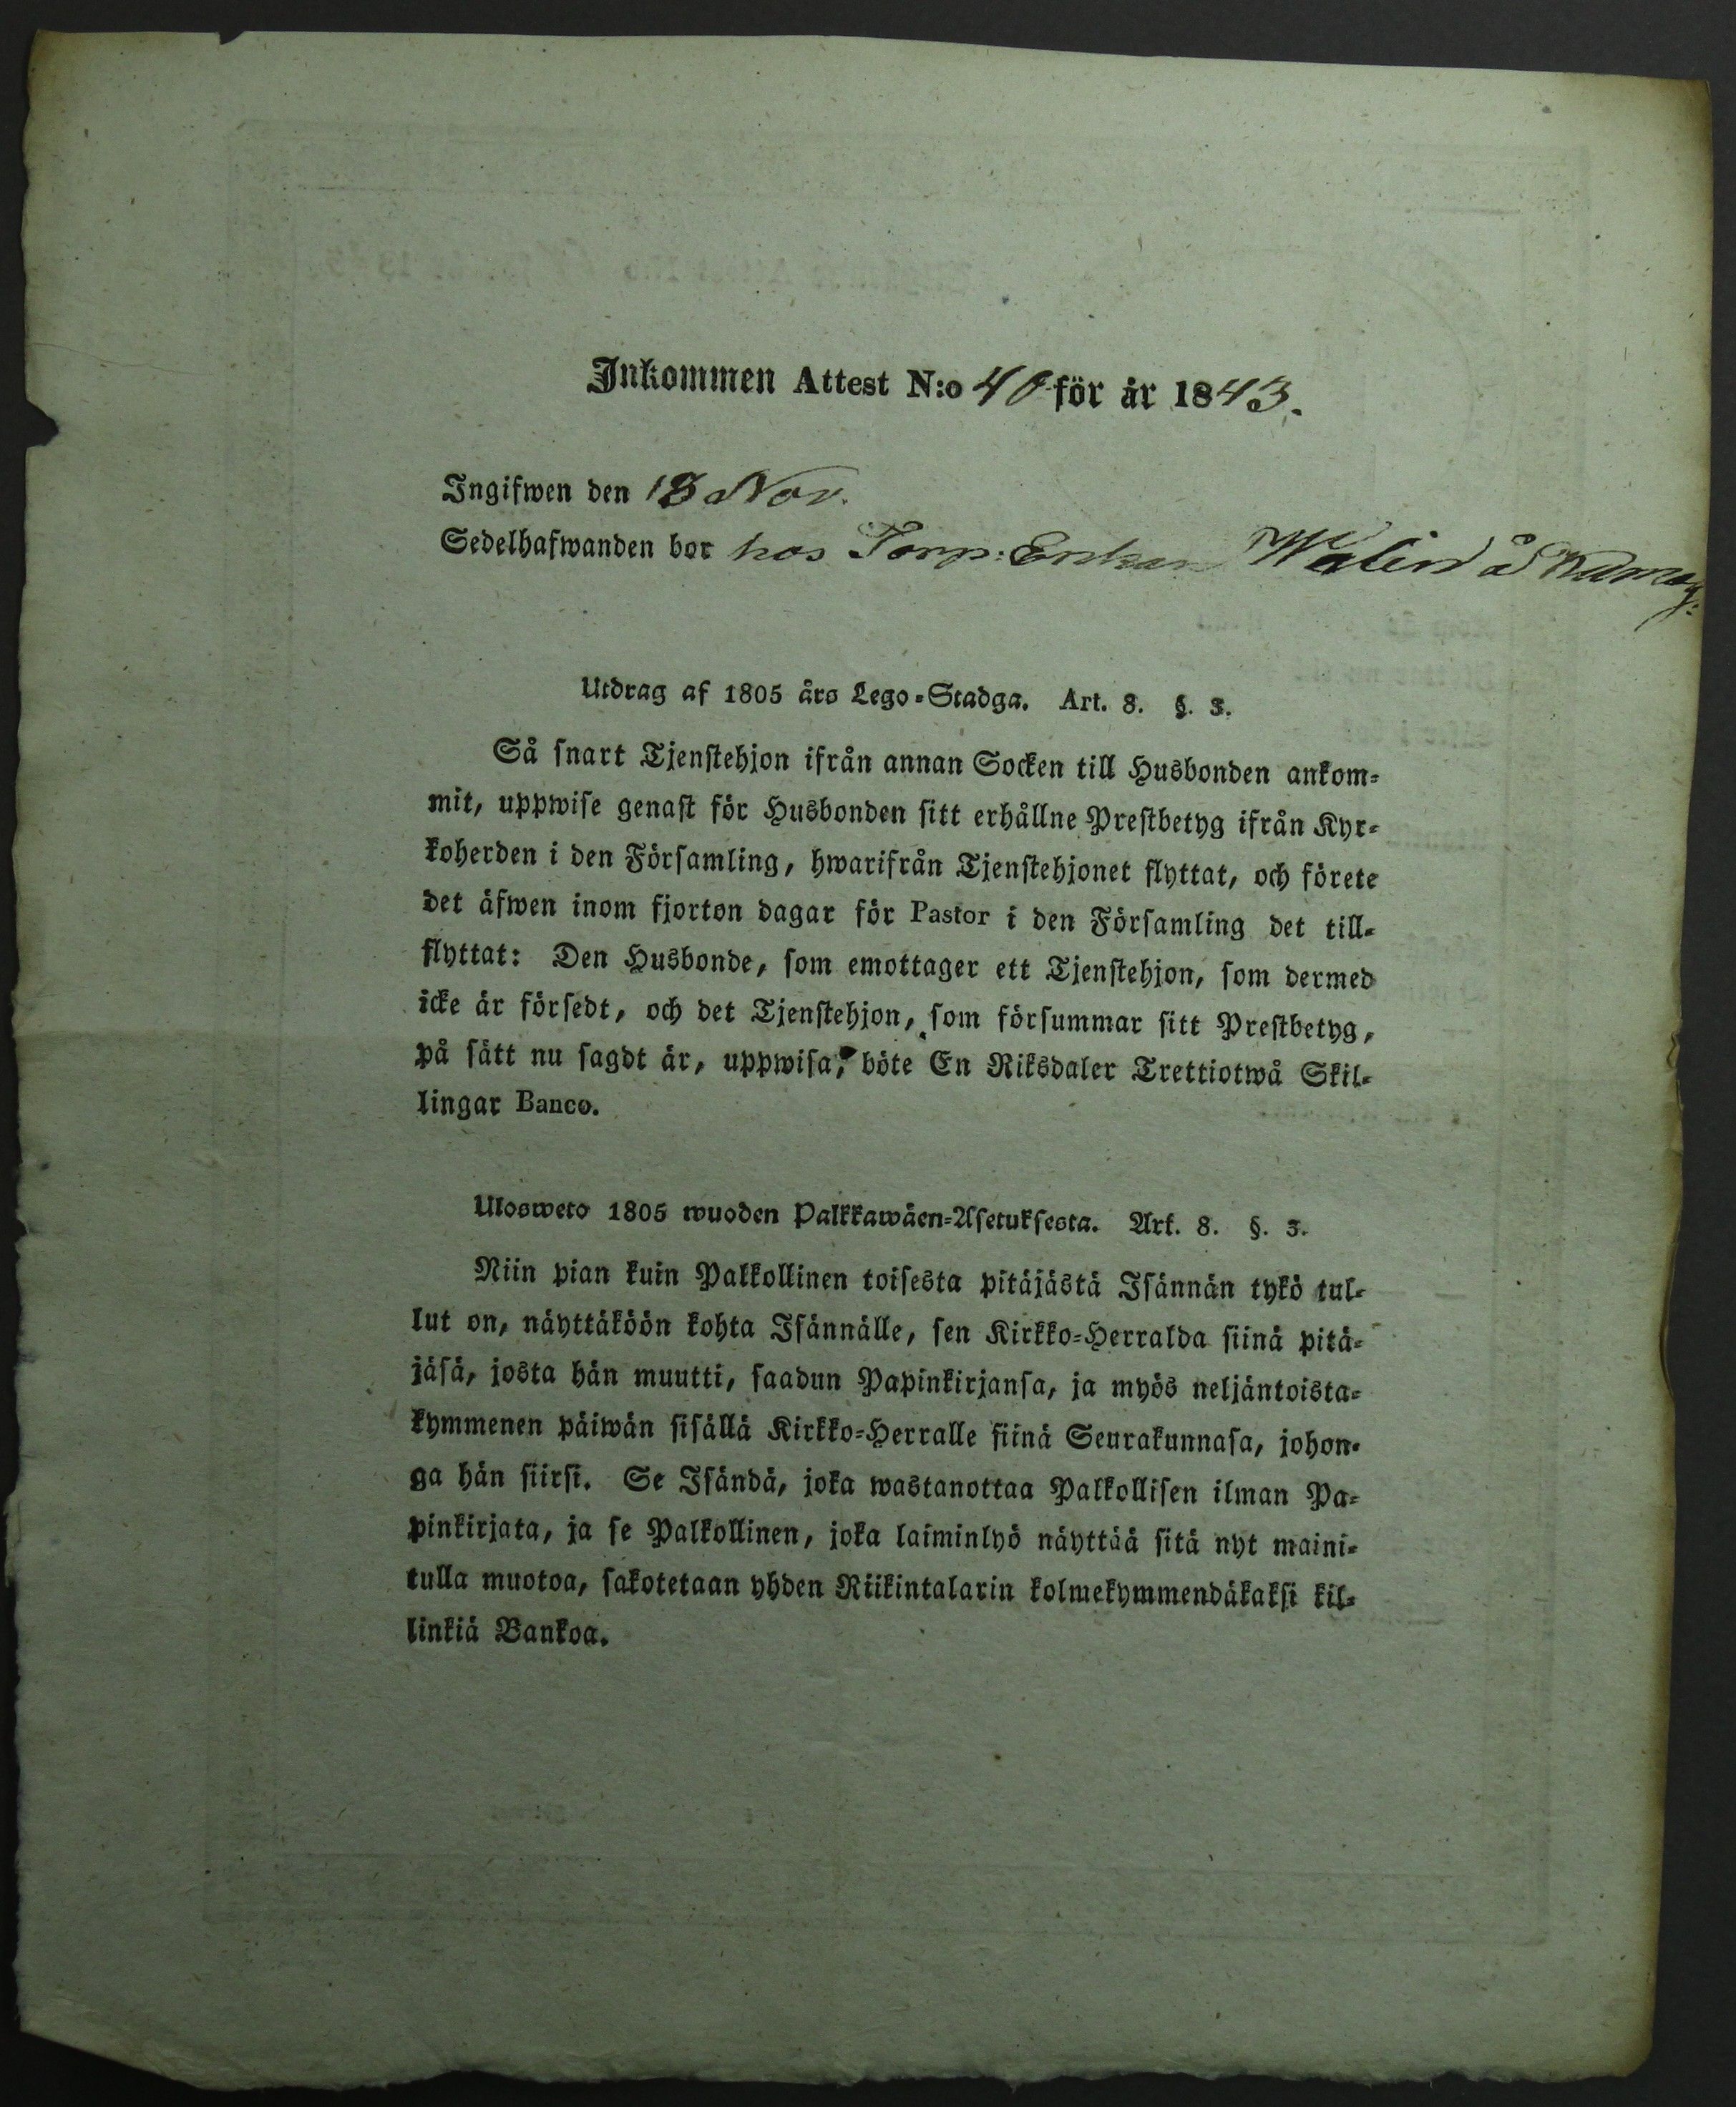 Inkommen Attest N:o 40 för år 1843.
Ingifwen den 18 Nov.
Sedelhafwanden bor hos Torp: Enkan Walin å
Utdrag af 1805 års Lego-Stadga. Art. 8. §. 3.
Så snart Tjenstehjon ifrån annan Socken till Husbonden ankom-
mit, uppwise genast för Husbonden sitt erhållne Prestbetyg ifrån Kyr-
koherden i den Församling, hwarifrån Tjenstehjonet flyttat, och förete
det äfwen inom fjorton dagar för Pastor i den Församling det till-
flyttat: Den Husbonde, som emottager ett Tjenstehjon, som dermed
icke är försedt, och det Tjenstehjon, som försummar sitt Prestbetyg,
på sätt nu sagdt är, uppwisa, böte En Riksdaler Trettiotwå Skil-
lingar Banco.
Ulosweto 1805 wuoden Palkkawäen-Asetuksesta. Art. 8. §. 3.
Niin pian kuin Palkollinen toisesta pitäjästä Isännän tykö tul-
lut on, näyttäköön kohta Isännälle, sen Kirkko-Herralda siinä pitä-
jäsä, josta hän muutti, saadun Papinkirjansa, ja myös neljäntoista-
kymmenen päiwän sisällä Kirkko-Herralle siinä Seurakunnasa, johon-
ga hän siirsi. Se Isändä, joka wastanottaa Palkollisen ilman Pa-
pinkirjata, ja se Palkollinen, joka laiminlyö näyttää sitä nyt maini-
tulla muotoa, sakotetaan yhden Riikintalarin kolmekymmendäkaksi kil-
linkiä Bankoa.